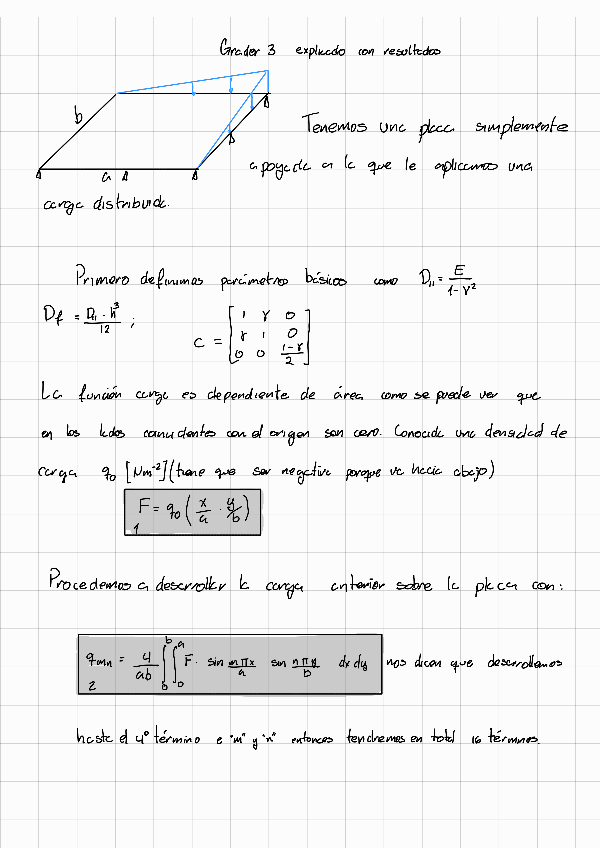 Grader 3 explicado con resultados
b
Tenemos una placa simplemente
a
apoyada a la que le aplicamos una
carga distribuida.
Primero definimos parámetros básicos como D₁₁ = E / 1-γ²
Df = D₁₁ · h³ / 12 ; C = [1 γ 0
γ 1 0
0 0 1-γ / 2]
La función carga es dependiente de área como se puede ver que
en los lados coincidentes con el origen son cero. Conocida una densidad de
carga q₀ [Nm⁻²] (tiene que ser negativa porque va hacia abajo)
F = q₀ (x/a · y/b)
1
Procedemos a desarrollar la carga anterior sobre la placa con:
qmn = 4/ab ∫₀ᵇ ∫₀ᵃ F · sin mπx/a sin nπy/b dx dy nos dicen que desarrollemos
2
hasta el 4º término e "m" y "n" entonces tendremos en total 16 términos.